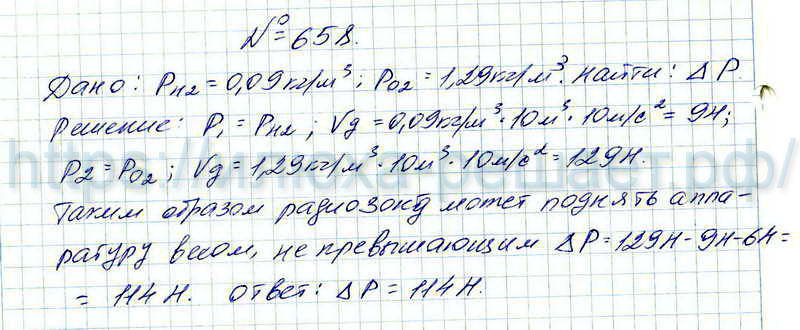 № 658.
Дано: Pн2 = 0,09 кг/м³; Pо2 = 1,29 кг/м³. Найти: ΔP.
Решение: P₁ = Pн2; Vg = 0,09 кг/м³ · 10 м³ · 10 м/с² = 9Н;
P2 = Pо2; Vg = 1,29 кг/м³ · 10 м³ · 10 м/с² = 129 Н.
Таким образом радиозонд может поднять аппа-
ратуру весом, не превышающим ΔP = 129Н - 9Н - 6Н =
= 114 Н. Ответ: ΔP = 114 Н.